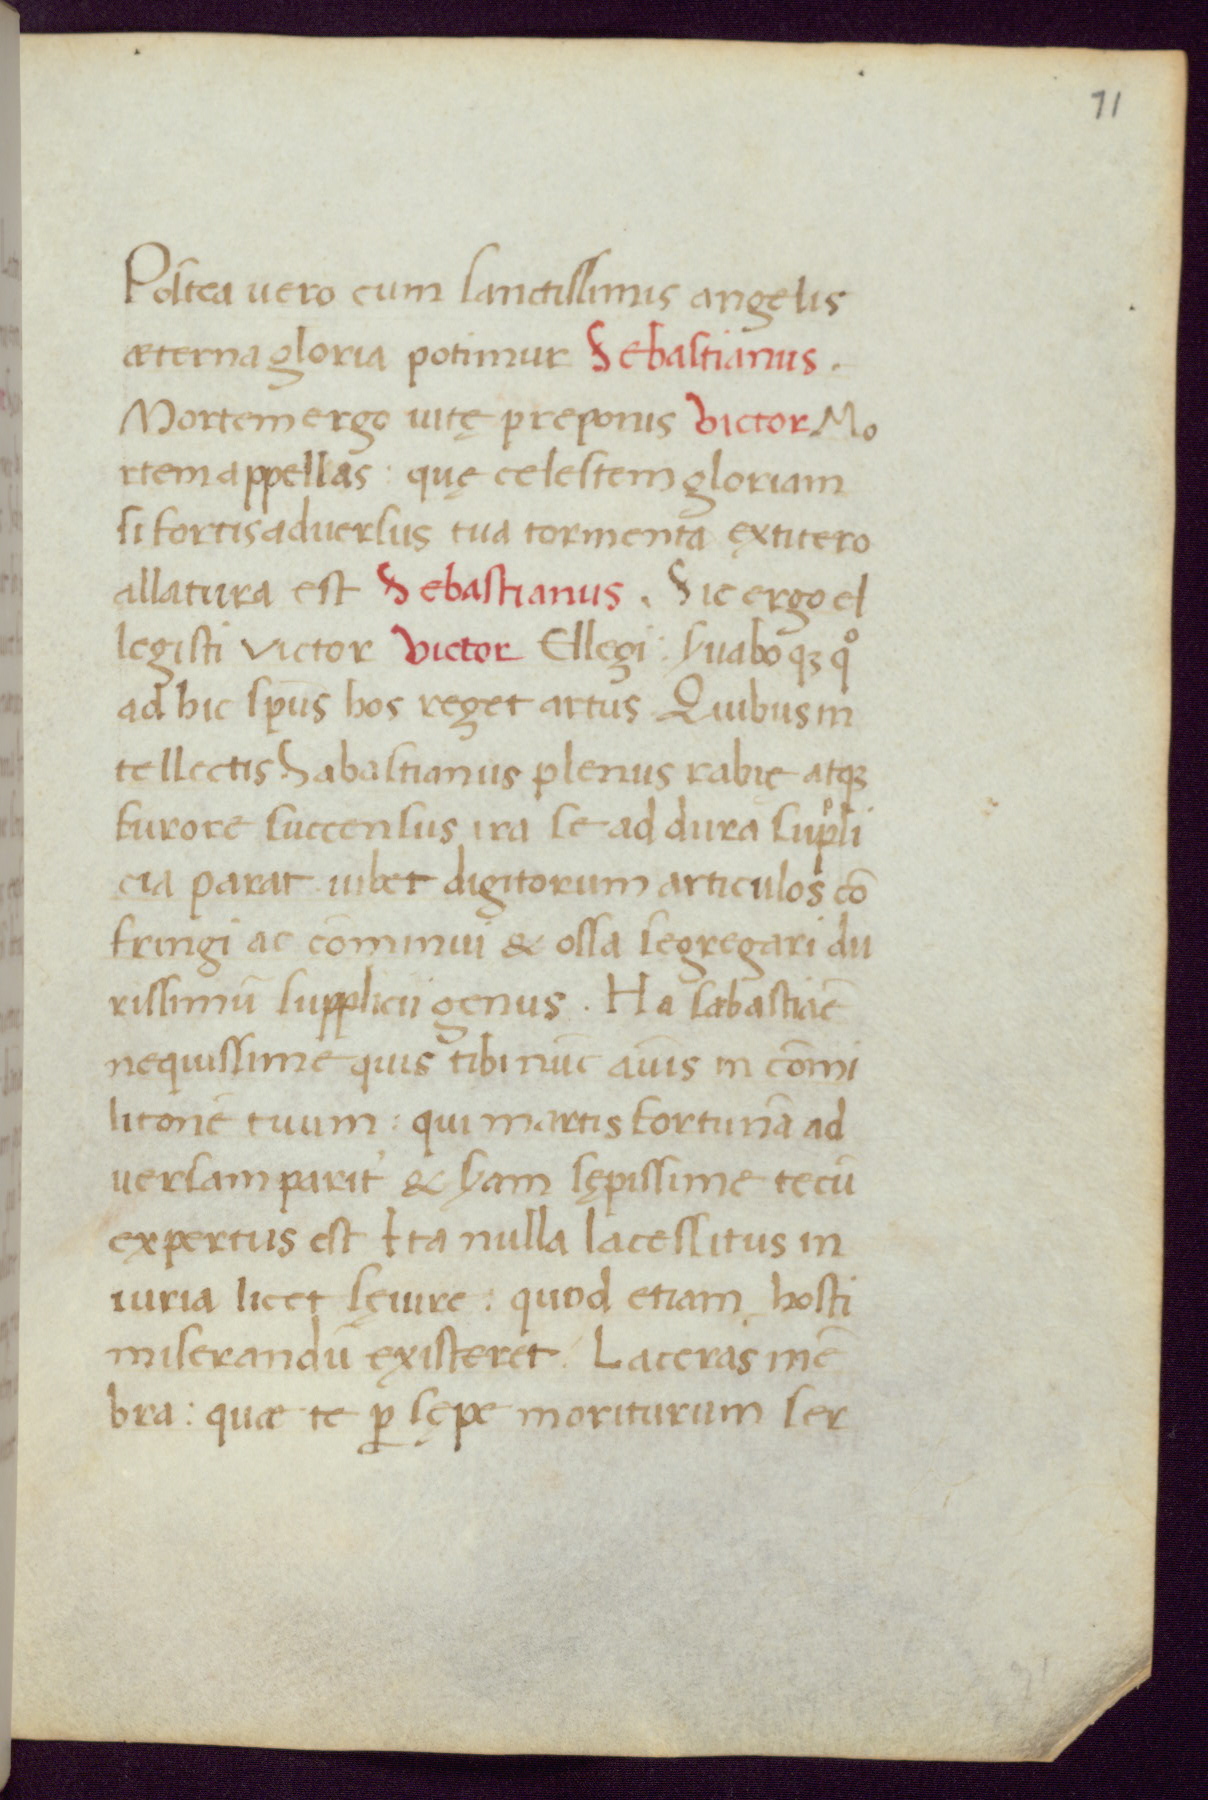 71
Postea uero cum sanctissimis angelis
æterna gloria potimur Sebastianus.
Mortem ergo uitę preponis Victor Mo
rtem appellas: quę celestem gloriam
si fortis aduersus tua tormenta extitero
allatura est Sebastianus. Sic ergo el
legisti Victor Victor Ellegi: seruaboqȝ qͦ
ad hic spūs hos reget artus Quibus in
tellectis Sabastianus plenus rabię atqȝ
furore succensus ira se ad dura supᵖli
cia parat iubet digitorum articulos cō
fringi ac cōminui & ossa segregari du
rissimū supplicii genus. Ha sabastiāe
nequissime quis tibi nūc aūis in cōmi
litonē tuum: qui martis fortunā ad
uersam parit' & yam sępissime tecū
expertus est Ita nulla lacessitus in
iuria licet sęuire: quod etiam hosti
miserandū existeret. Laceras mē
bra: quæ te ꝑ sępe moriturum ser